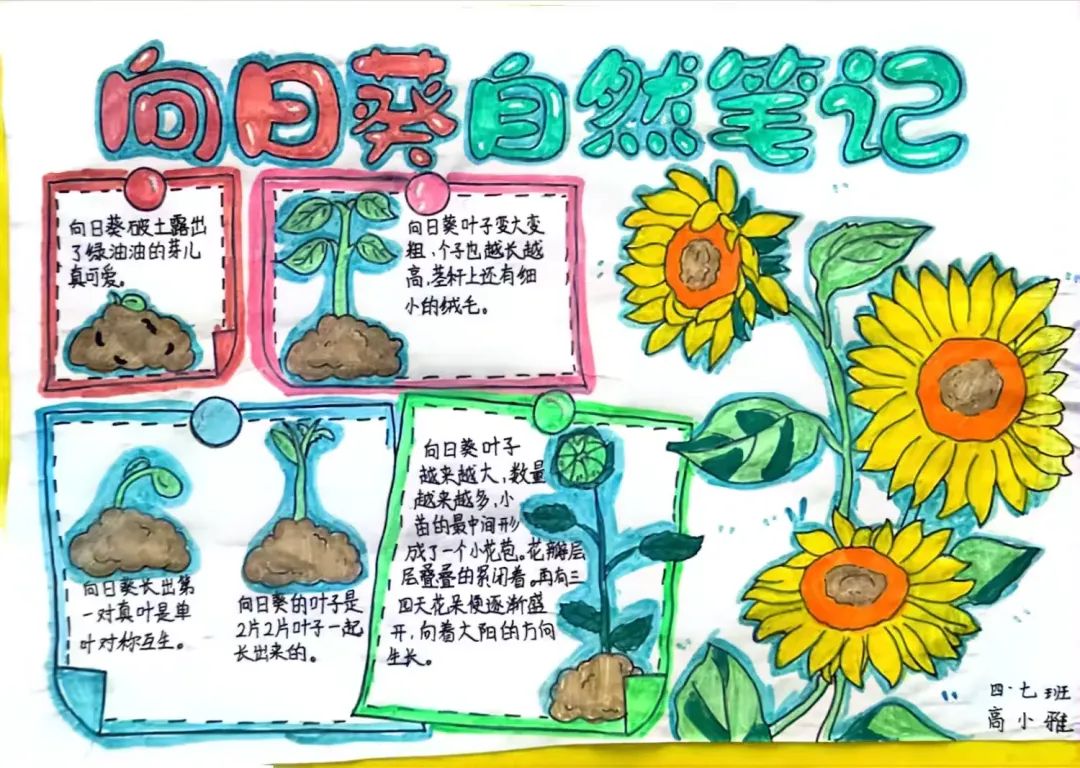 向日葵自然笔记
向日葵破土露出
了绿油油的芽儿
真可爱。
向日葵叶子变大变
粗，个子也越长越
高，茎秆上还有细
小的绒毛。
向日葵长出第
一对真叶是单
叶对称互生。
向日葵的叶子是
2片2片叶子一起
长出来的。
向日葵叶子
越来越大，数量
越来越多，小
苗的最中间形
成了一个小花苞。花瓣层
层叠叠的紧闭着。再有三
四天花朵便逐渐盛
开，向着大阳的方向
生长。
四·七班
高小雅